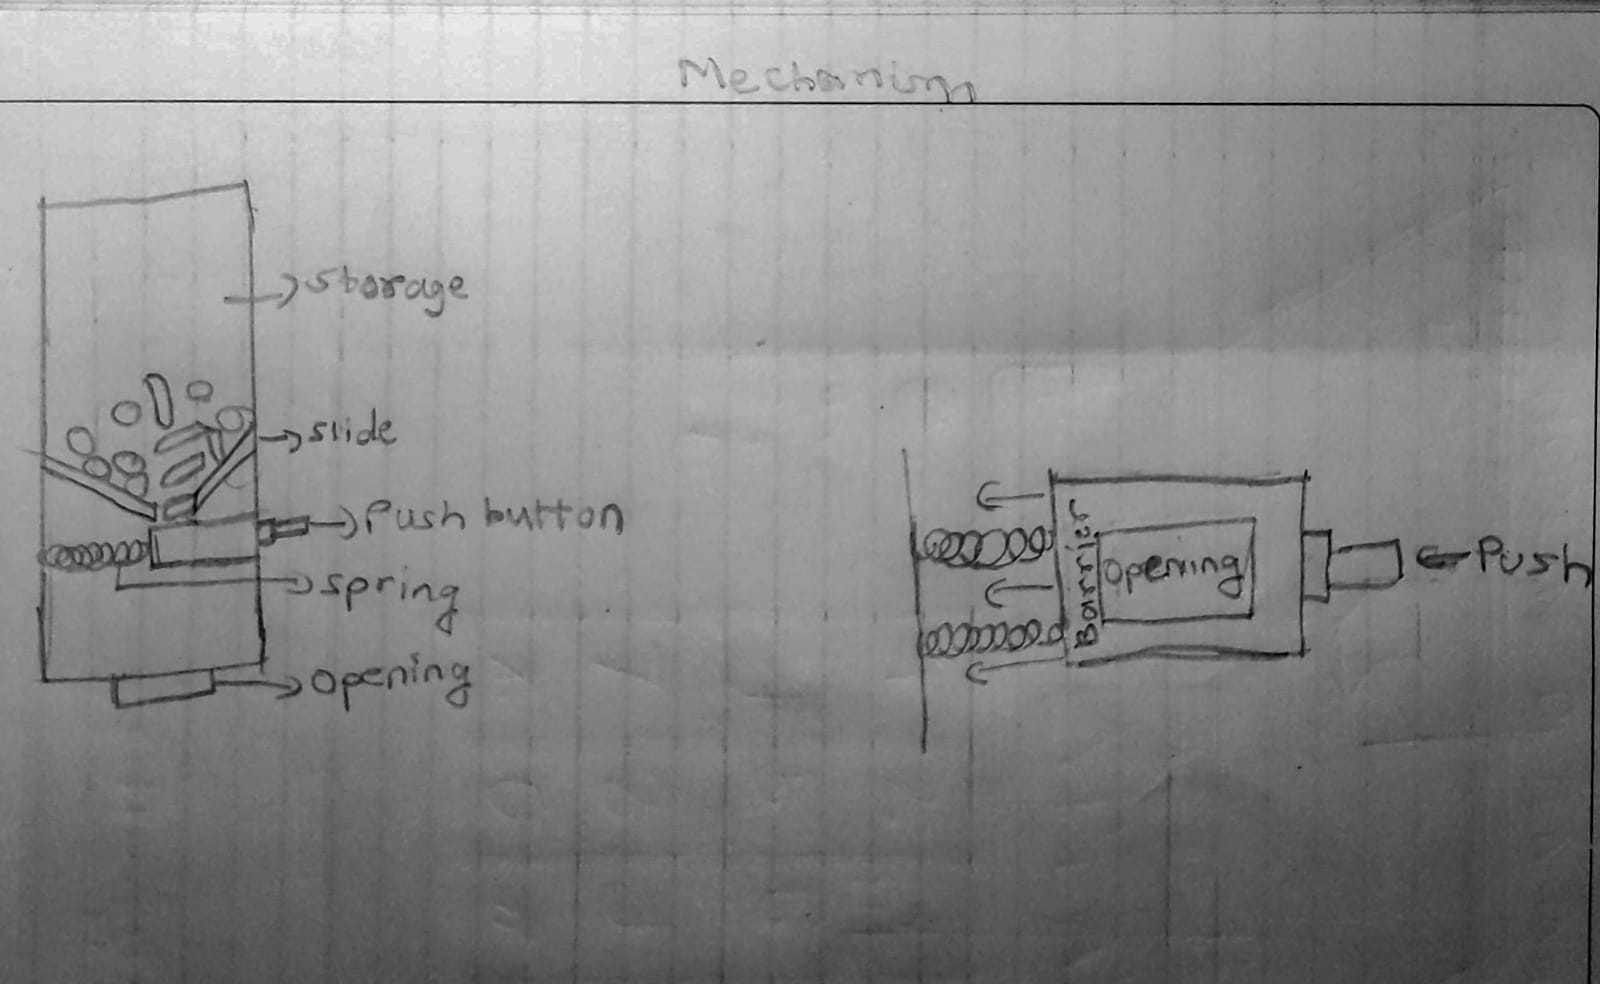 Mechanism
Storage
slide
Push button
spring
opening
Barrier
opening
Push